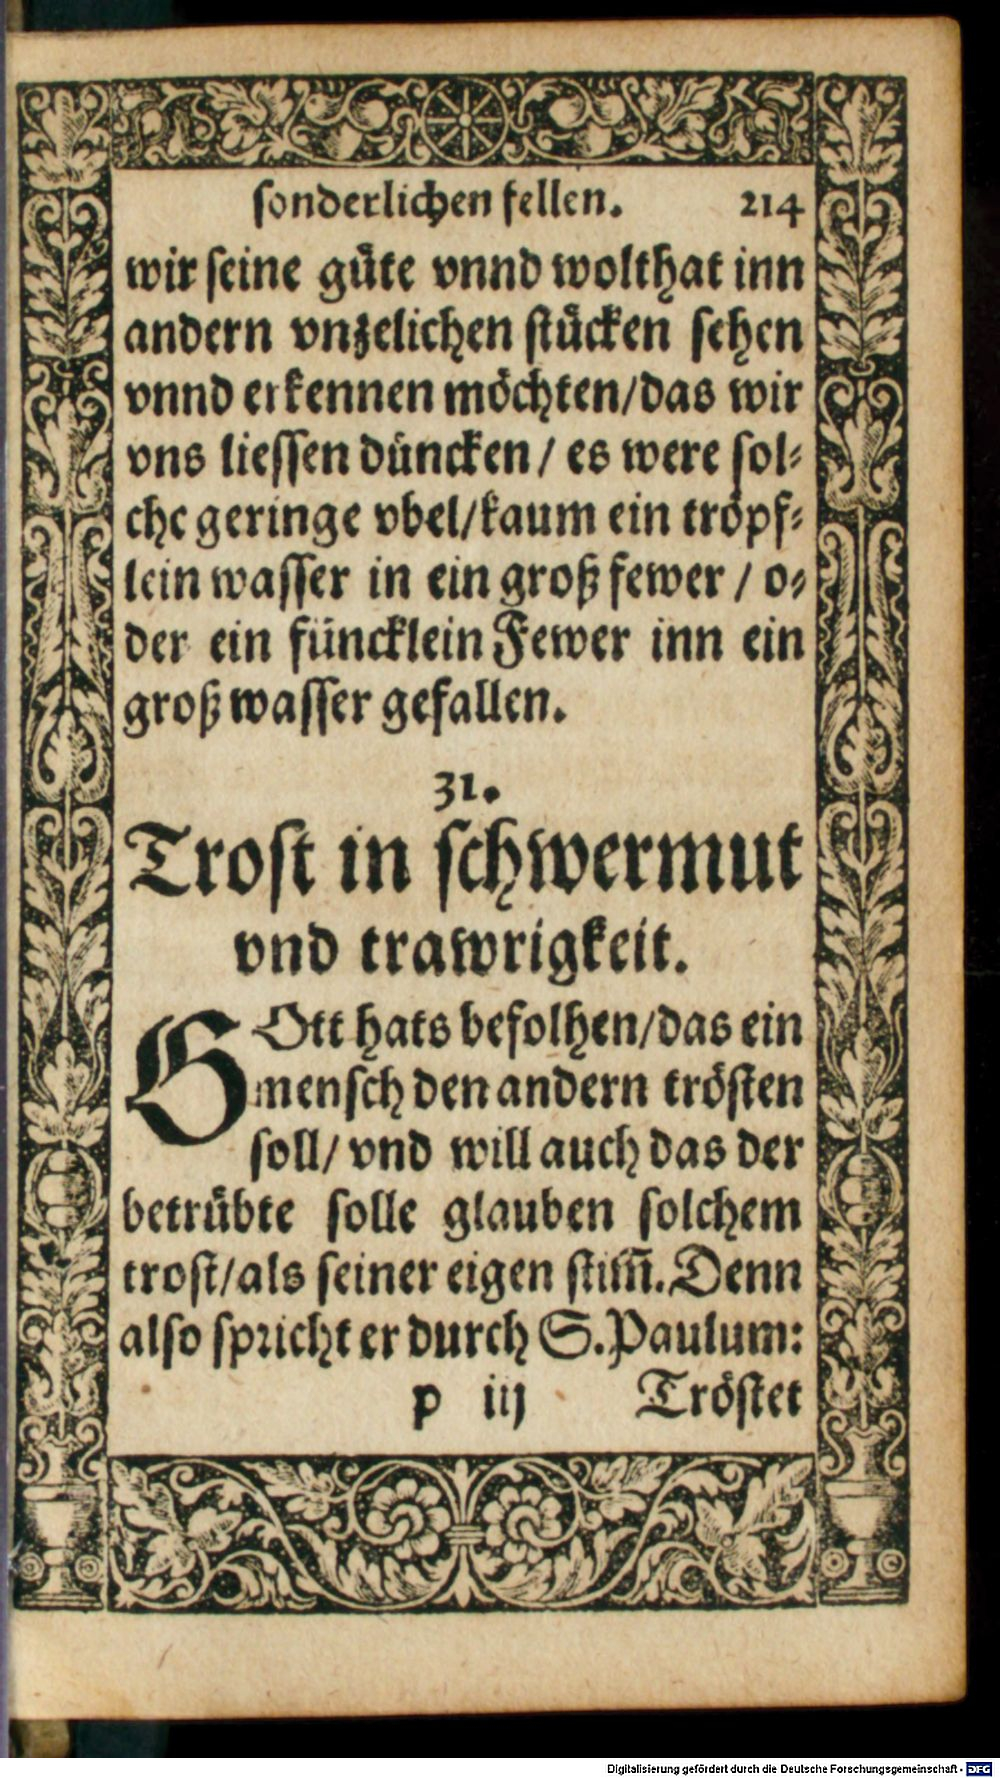 sonderlichen fellen. 214
wir seine güte vnnd wolthat inn
andern vnzelichen stücken sehen
vnnd erkennen möchten/das wir
vns liessen düncken / es were sol⸗
che geringe vbel/kaum ein tröpf⸗
lein wasser in ein groß fewer / o⸗
der ein füncklein Fewer inn ein
groß wasser gefallen.
31.
Trost in schwermut
vnd trawrigkeit.
GOtt hats befolhen/das ein
mensch den andern trösten
soll/ vnd will auch das der
betrübte solle glauben solchem
trost/als seiner eigen stim̅. Denn
also spricht er durch S. Paulum:
p iij Tröstet
Digitalisierung gefördert durch die Deutsche Forschungsgemeinschaft - DFG